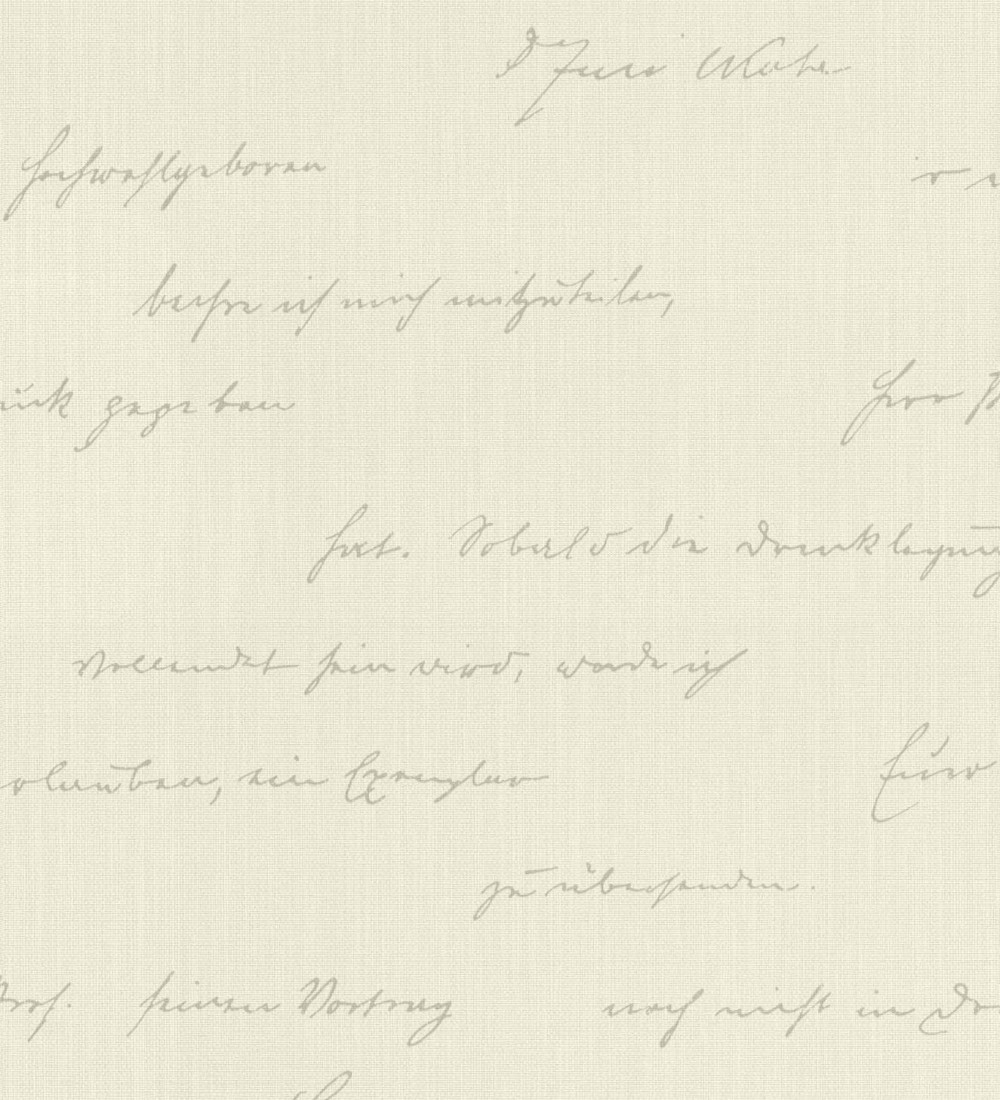 Hochwohlgeboren
beehre ich mich mitzuteilen,
gegeben
Herr
hat. Sobald die Drucklegung
vollendet sein wird, werde ich
erlauben, ein Exemplar
Euer
zu übersenden.
Prof. seinen Vortrag noch nicht in